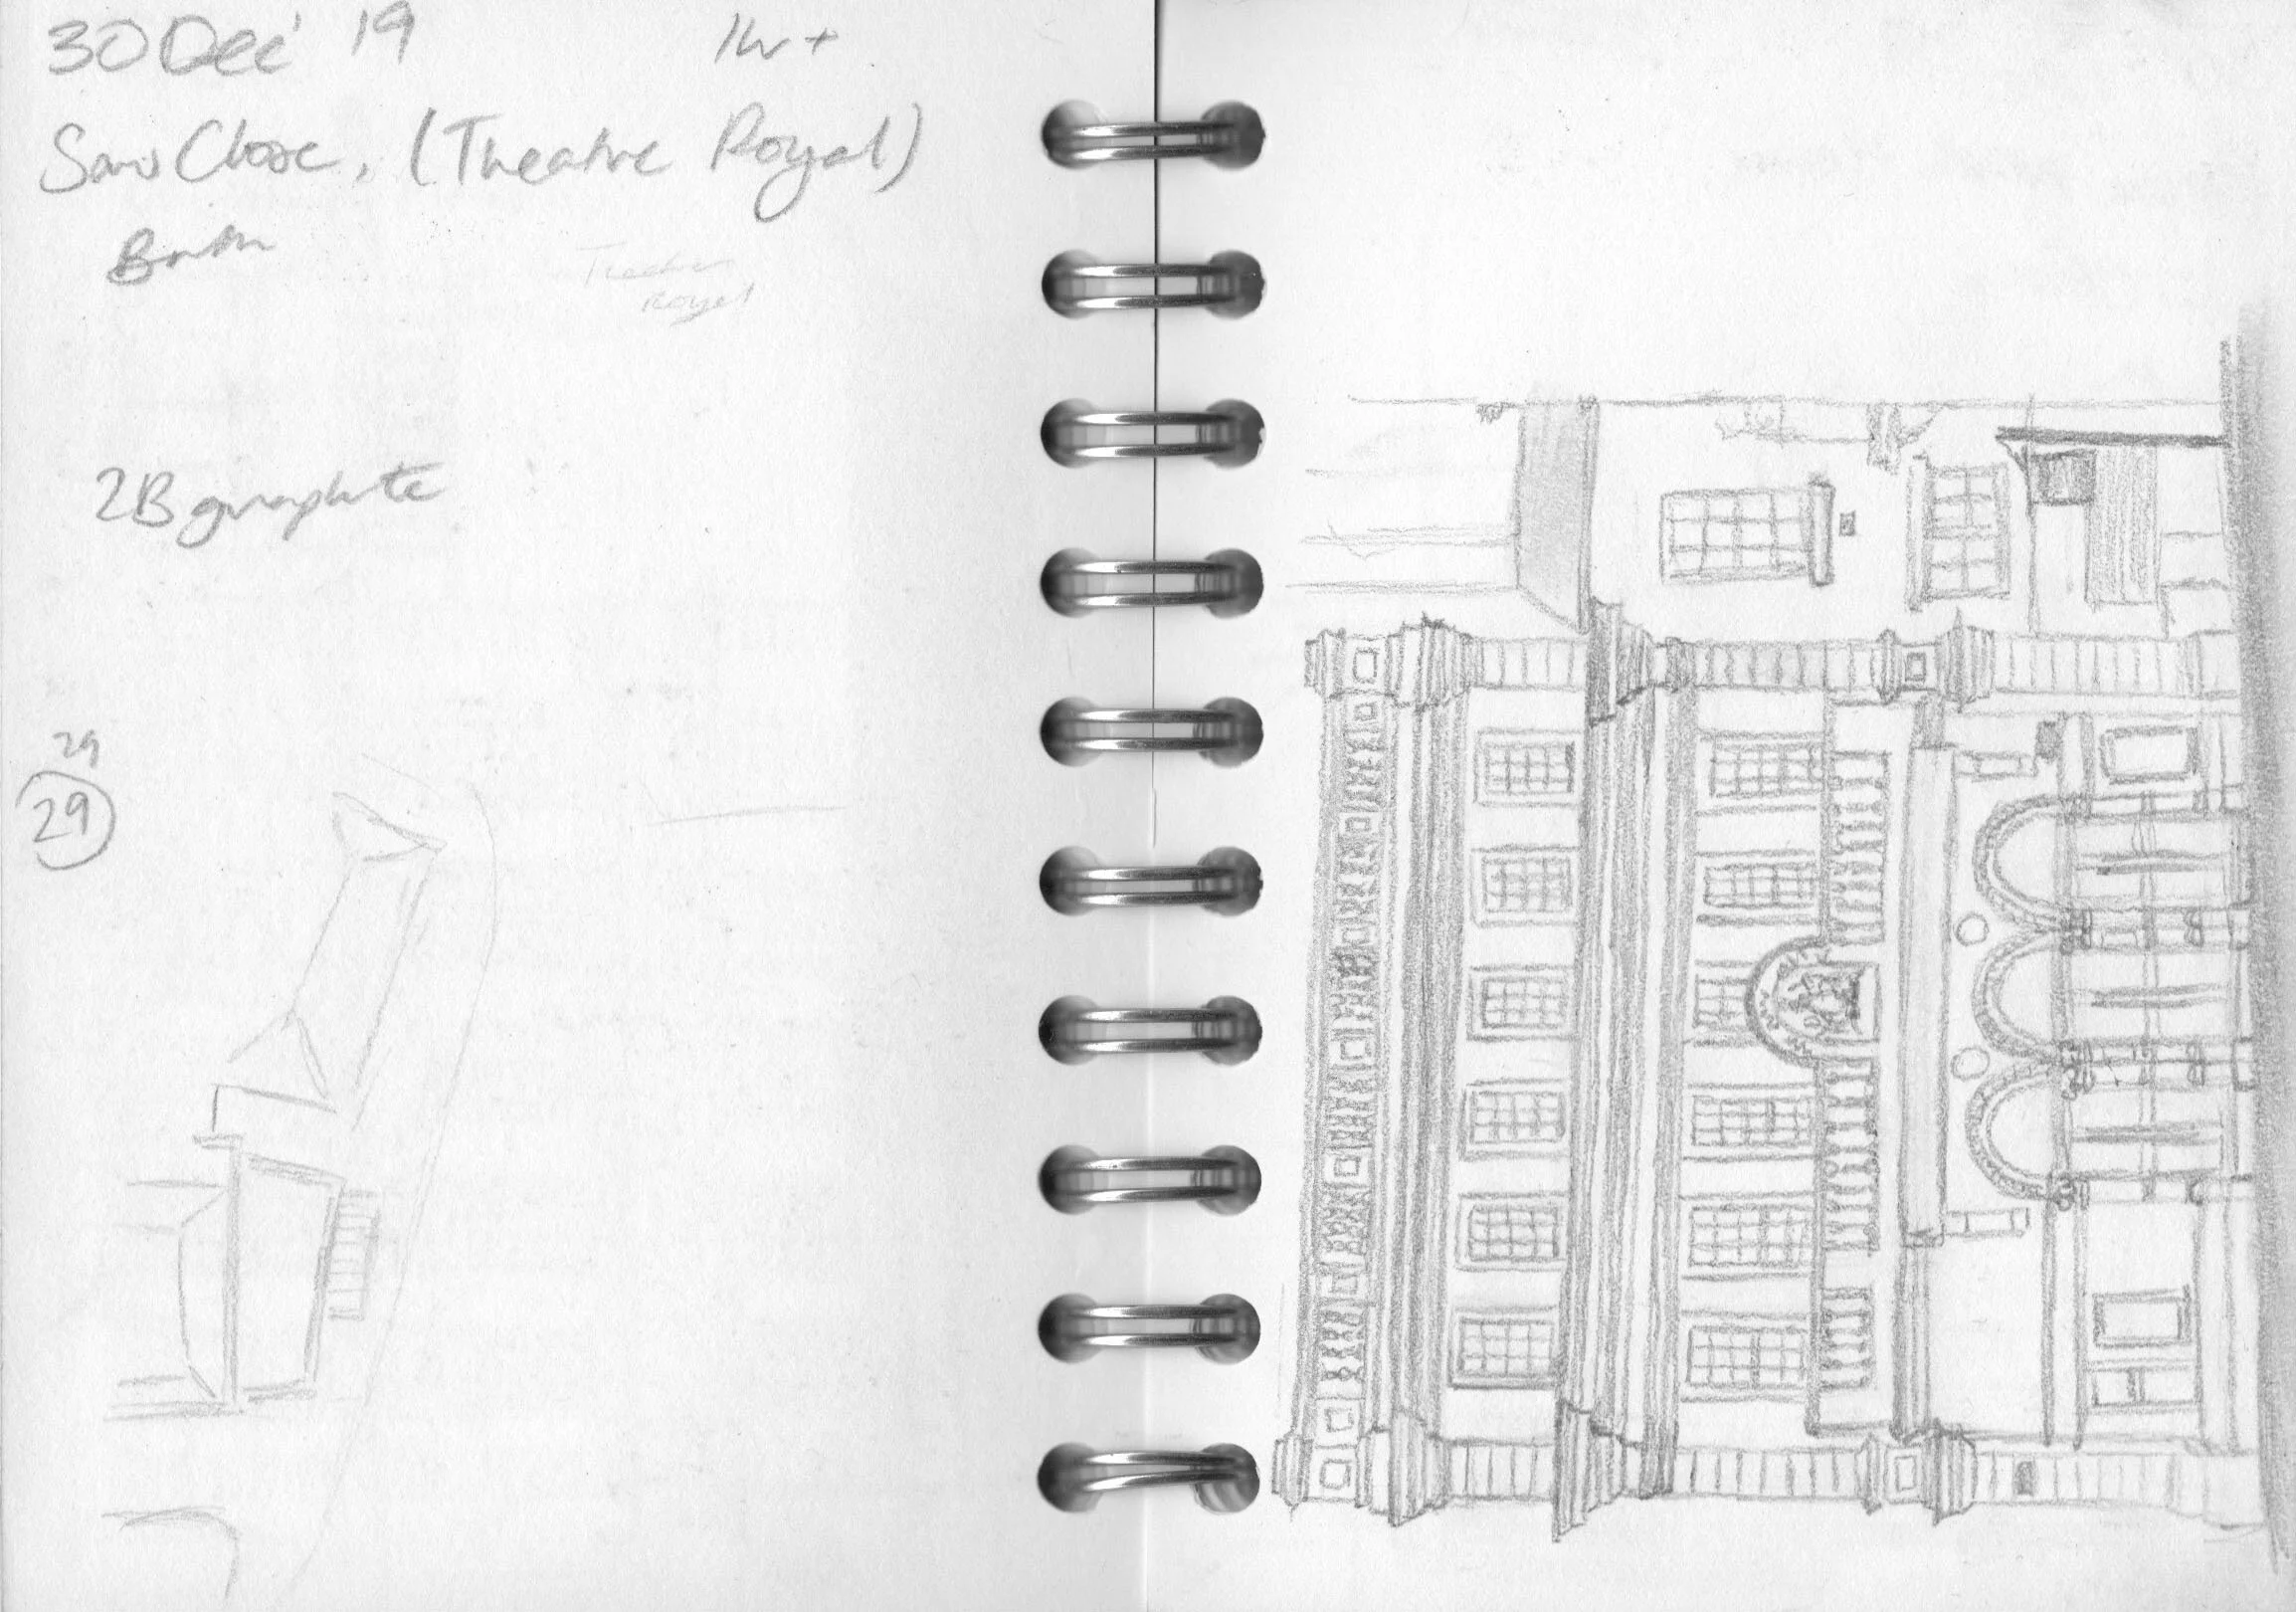 30 Dec '19 1hr +
Sam's Close, (Theatre Royal)
Theatre
Royal
2B graphite
29
29